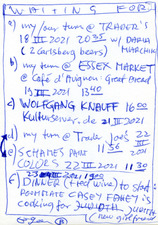 WAITING FOR
a) my bar turn @ TRADER'S
18 III 2021 20 35 w/ DARIA
(2 Carlsberg beers)
b) my turn @ ESSEX MARKET
@ Café d'Avignon: Great Bread
19 III 2021 13 40
c) WOLFGANG KNAUFF 16 00
Kulturserver.de 21 III 2021
d) my turn @ Trader Joe's 22 III
e) SCHAMES PAINT 11 56 2021
COLORS 22 III 2021 11 30
f) DINNER (red wine) to start:
roommate CASEY FAHEY is
cooking for JUDITH
(new girlfriend)